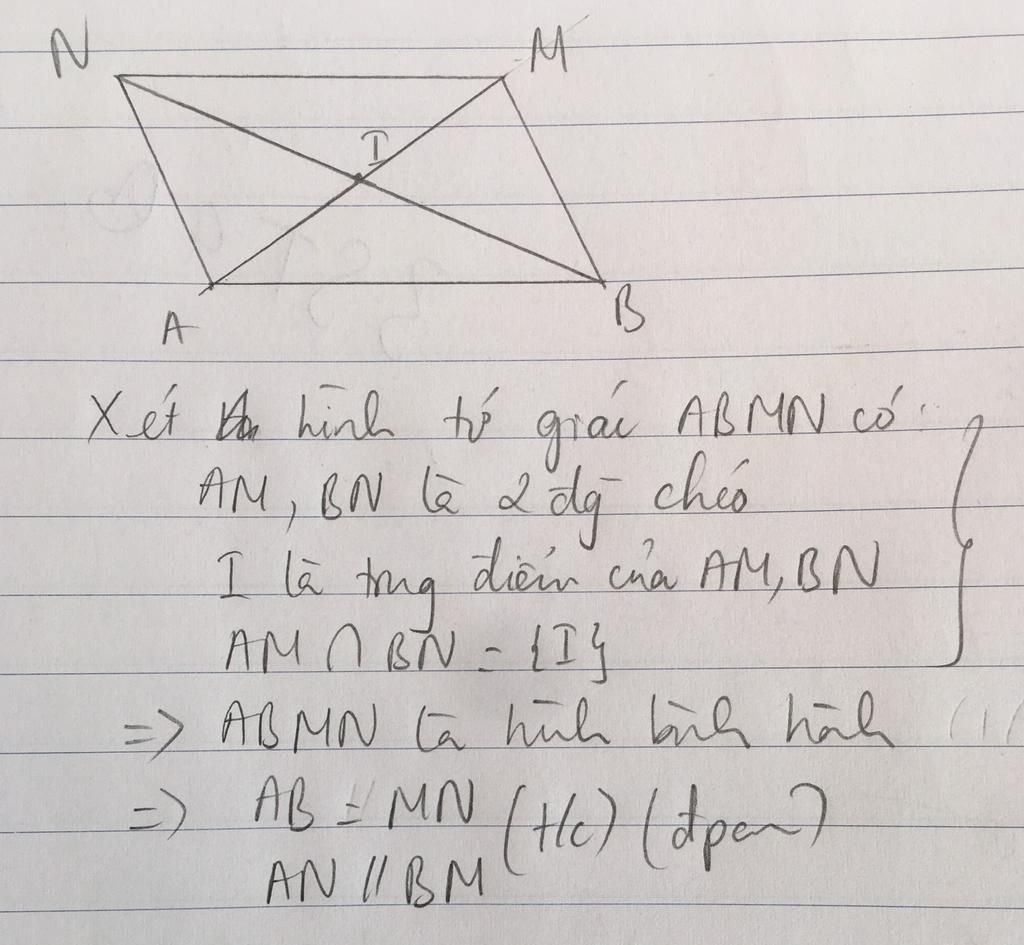 N M
I
A B
Xét hình tứ giác ABMN có:
AM, BN là 2 đg chéo
I là trug điểm của AM, BN
AM ∩ BN = {I}
=> ABMN là hình bình hành (1)
=> AB = MN (t/c) (đpcm)
AN // BM